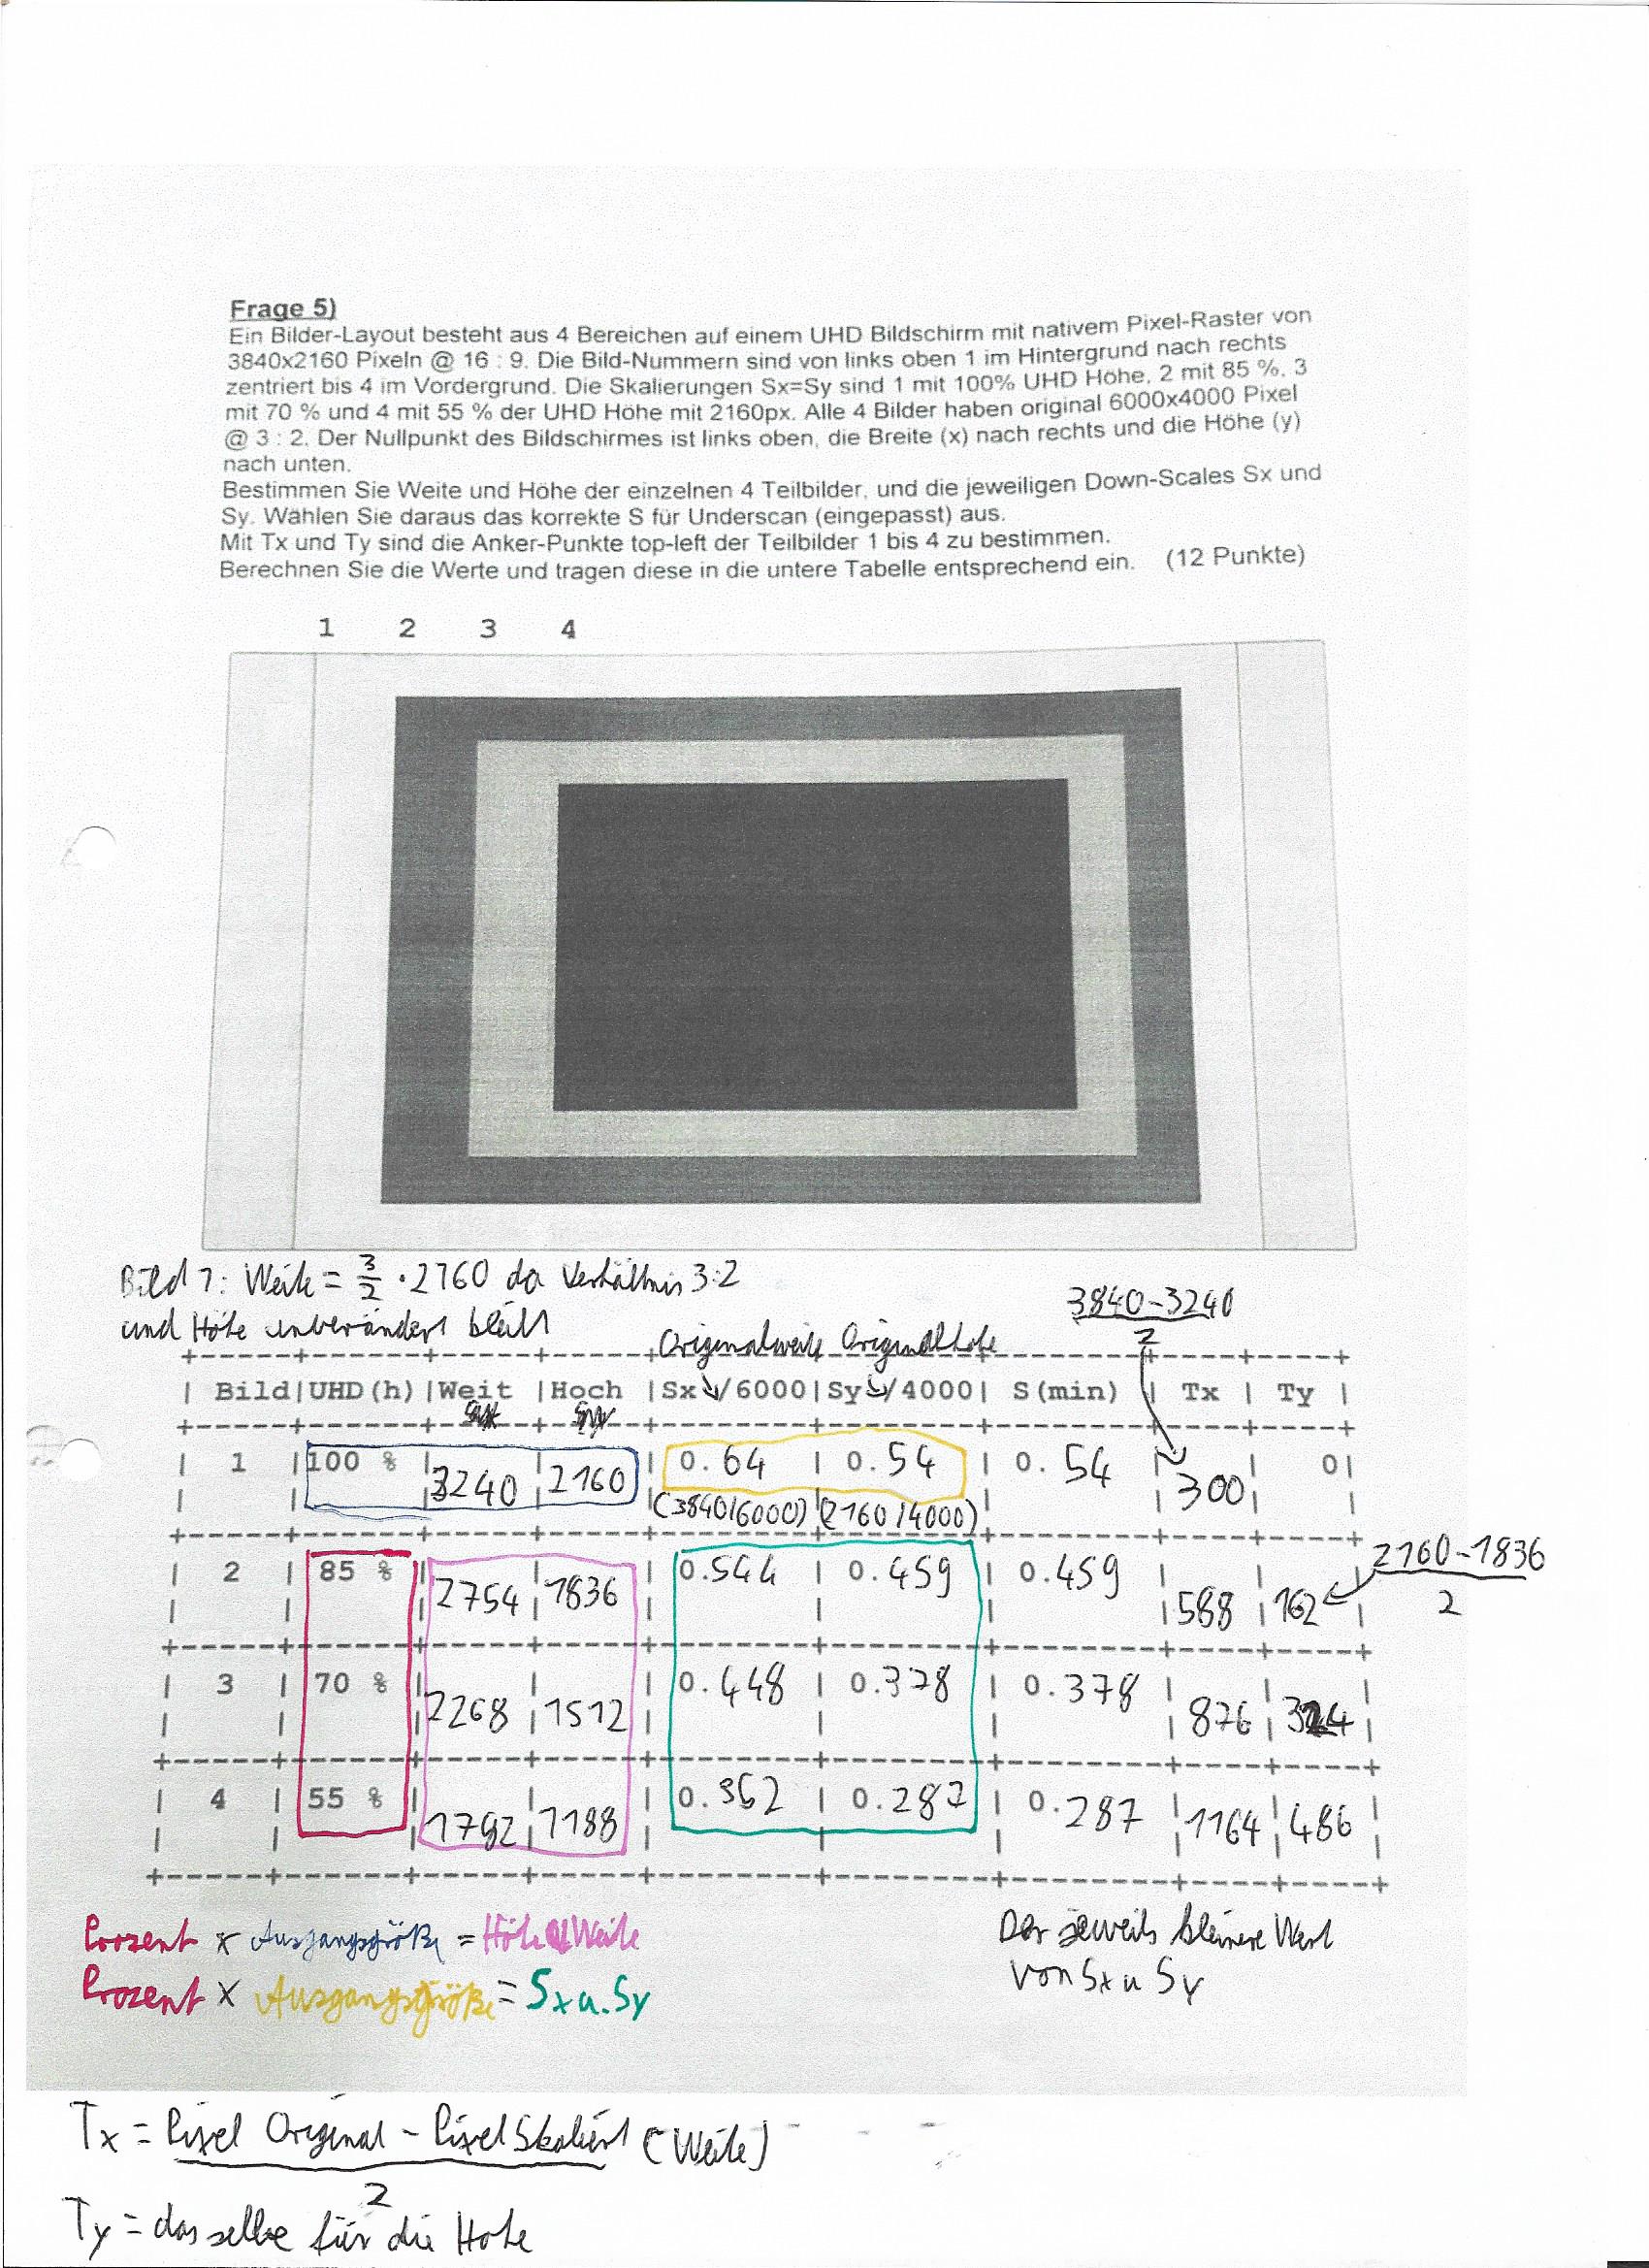 Frage 5)
Ein Bilder-Layout besteht aus 4 Bereichen auf einem UHD Bildschirm mit nativem Pixel-Raster von
3840x2160 Pixeln @ 16 : 9. Die Bild-Nummern sind von links oben 1 im Hintergrund nach rechts
zentriert bis 4 im Vordergrund. Die Skalierungen Sx=Sy sind 1 mit 100% UHD Höhe, 2 mit 85 %, 3
mit 70 % und 4 mit 55 % der UHD Höhe mit 2160px. Alle 4 Bilder haben original 6000x4000 Pixel
@ 3 : 2. Der Nullpunkt des Bildschirmes ist links oben, die Breite (x) nach rechts und die Höhe (y)
nach unten.
Bestimmen Sie Weite und Höhe der einzelnen 4 Teilbilder, und die jeweiligen Down-Scales Sx und
Sy. Wählen Sie daraus das korrekte S für Underscan (eingepasst) aus.
Mit Tx und Ty sind die Anker-Punkte top-left der Teilbilder 1 bis 4 zu bestimmen.
Berechnen Sie die Werte und tragen diese in die untere Tabelle entsprechend ein. (12 Punkte)
1 2 3 4
Bild 1: Weite = 3/2 · 2160 da Verhältnis 3:2
und Höhe unverändert bleibt
3840-3240
2
Originalweite Originalhöhe
| Bild|UHD(h) |Weit |Hoch |Sx /6000|Sy /4000| S(min) | Tx | Ty |
| 1 |100 % |3240 |2160 | 0.64 | 0.54 | 0.54 | 300 | 0|
(3840/6000) (2160/4000)
| 2 | 85 % |2754 |1836 |0.544 | 0.459 | 0.459 | 588 | 162 |
2160-1836
2
| 3 | 70 % |2268 |1512 |0.448 | 0.378 | 0.378 | 876 | 324 |
| 4 | 55 % |1782 |1188 |0.352 | 0.287 | 0.287 |1164 |486 |
Prozent x Ausgangsgröße = Höhe u Weite
Prozent x Ausgangsgröße = Sx u. Sy
Der jeweils kleinere Wert
von Sx u Sy
Tx = Pixel Original - Pixel Skaliert (Weite)
2
Ty = das selbe für die Höhe